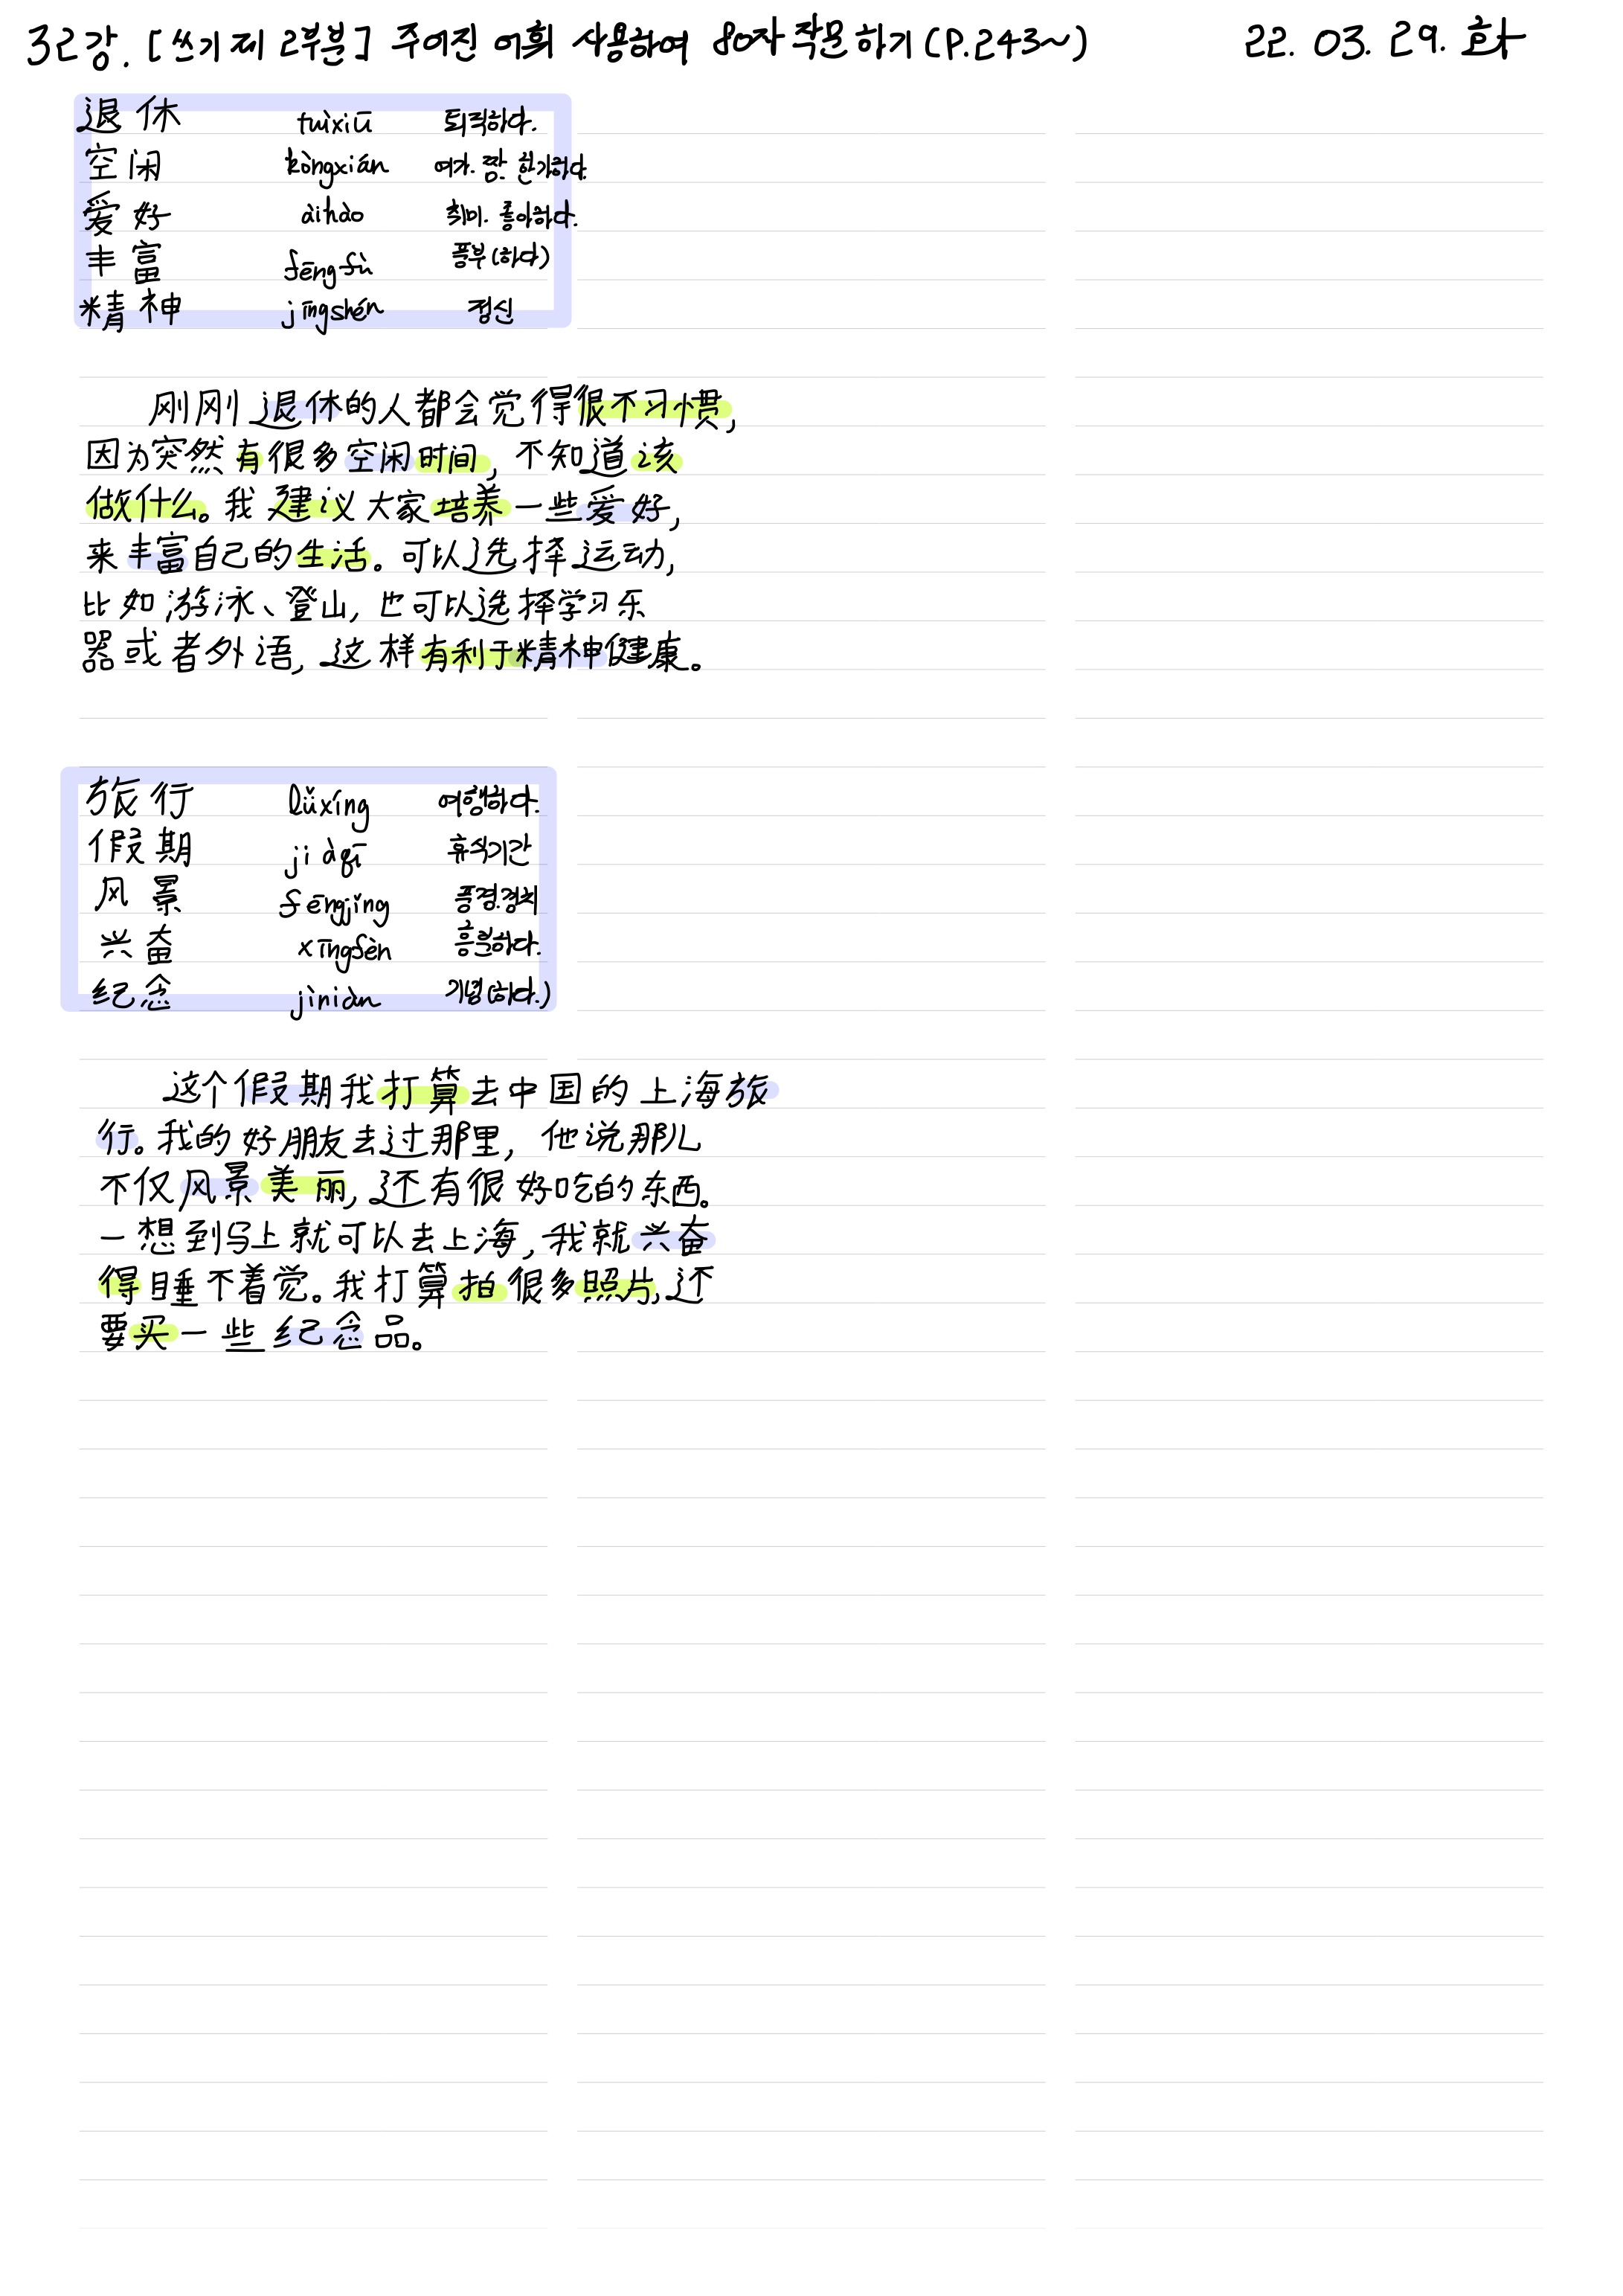 32강. [쓰기 제 2부분] 주어진 어휘 사용하여 80자 작문하기 (P.243~) 22. 03. 29. 화
退休 tuìxiū 퇴직하다.
空闲 kòngxián 여가. 짬. 한가하다.
爱好 àihào 취미. 좋아하다.
丰富 fēngfù 풍부(하다)
精神 jīngshén 정신
刚刚退休的人都会觉得很不习惯,
因为突然有很多空闲时间, 不知道该
做什么。我建议大家培养一些爱好,
来丰富自己的生活。可以选择运动,
比如游泳、登山, 也可以选择学习乐
器或者外语, 这样有利于精神健康。
旅行 lǚxíng 여행하다.
假期 jiàqī 휴식기간
风景 fēngjǐng 풍경.경치
兴奋 xīngfèn 흥분하다.
纪念 jìniàn 기념(하다.)
这个假期我打算去中国的上海旅
行。我的好朋友去过那里, 他说那儿
不仅风景美丽, 还有很好吃的东西。
一想到马上就可以去上海, 我就兴奋
得睡不着觉。我打算拍很多照片, 还
要买一些纪念品。